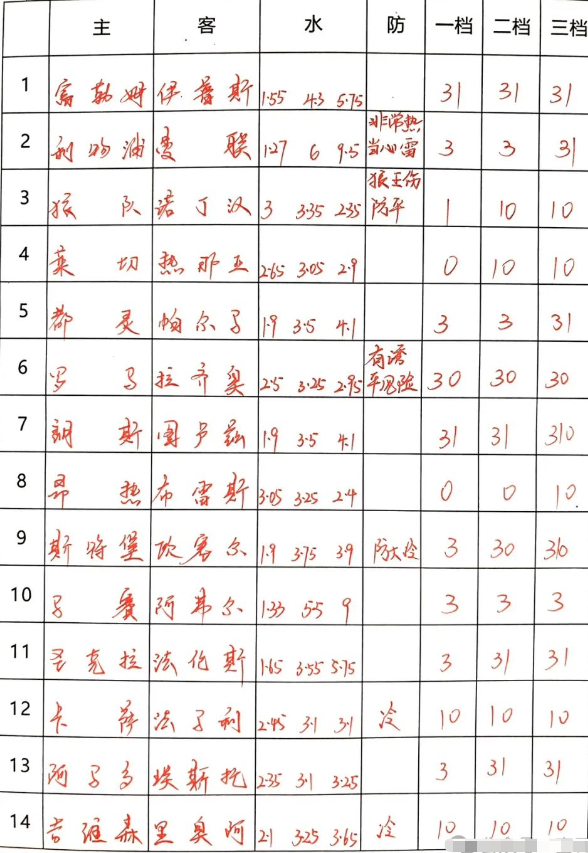 主 客 水 防 一档 二档 三档
1 富勒姆 伊普斯 1.55 4.3 5.75 31 31 31
2 利物浦 曼联 1.27 6 9.5 非常热当心雷 3 3 31
3 狼队 诺丁汉 3 3.35 2.35 狼主伤防平 1 10 10
4 莱切 热那亚 2.65 3.05 2.9 0 10 10
5 都灵 帕尔马 1.9 3.5 4.1 3 3 31
6 罗马 拉齐奥 2.5 3.25 2.95 有诱平风险 30 30 30
7 朗斯 图卢兹 1.9 3.5 4.1 31 31 310
8 昂热 布雷斯 3.05 3.25 2.4 0 0 10
9 斯特堡 欧塞尔 1.9 3.75 3.9 防大冷 3 30 310
10 马赛 阿弗尔 1.33 5.5 9 3 3 3
11 圣克拉 法伦斯 1.65 3.55 5.75 3 31 31
12 卡萨 法马利 2.45 3.1 3.1 冷 10 10 10
13 阿马多 埃斯托 2.35 3.1 3.25 3 31 31
14 吉维森 里奥阿 2.1 3.25 3.65 冷 10 10 10